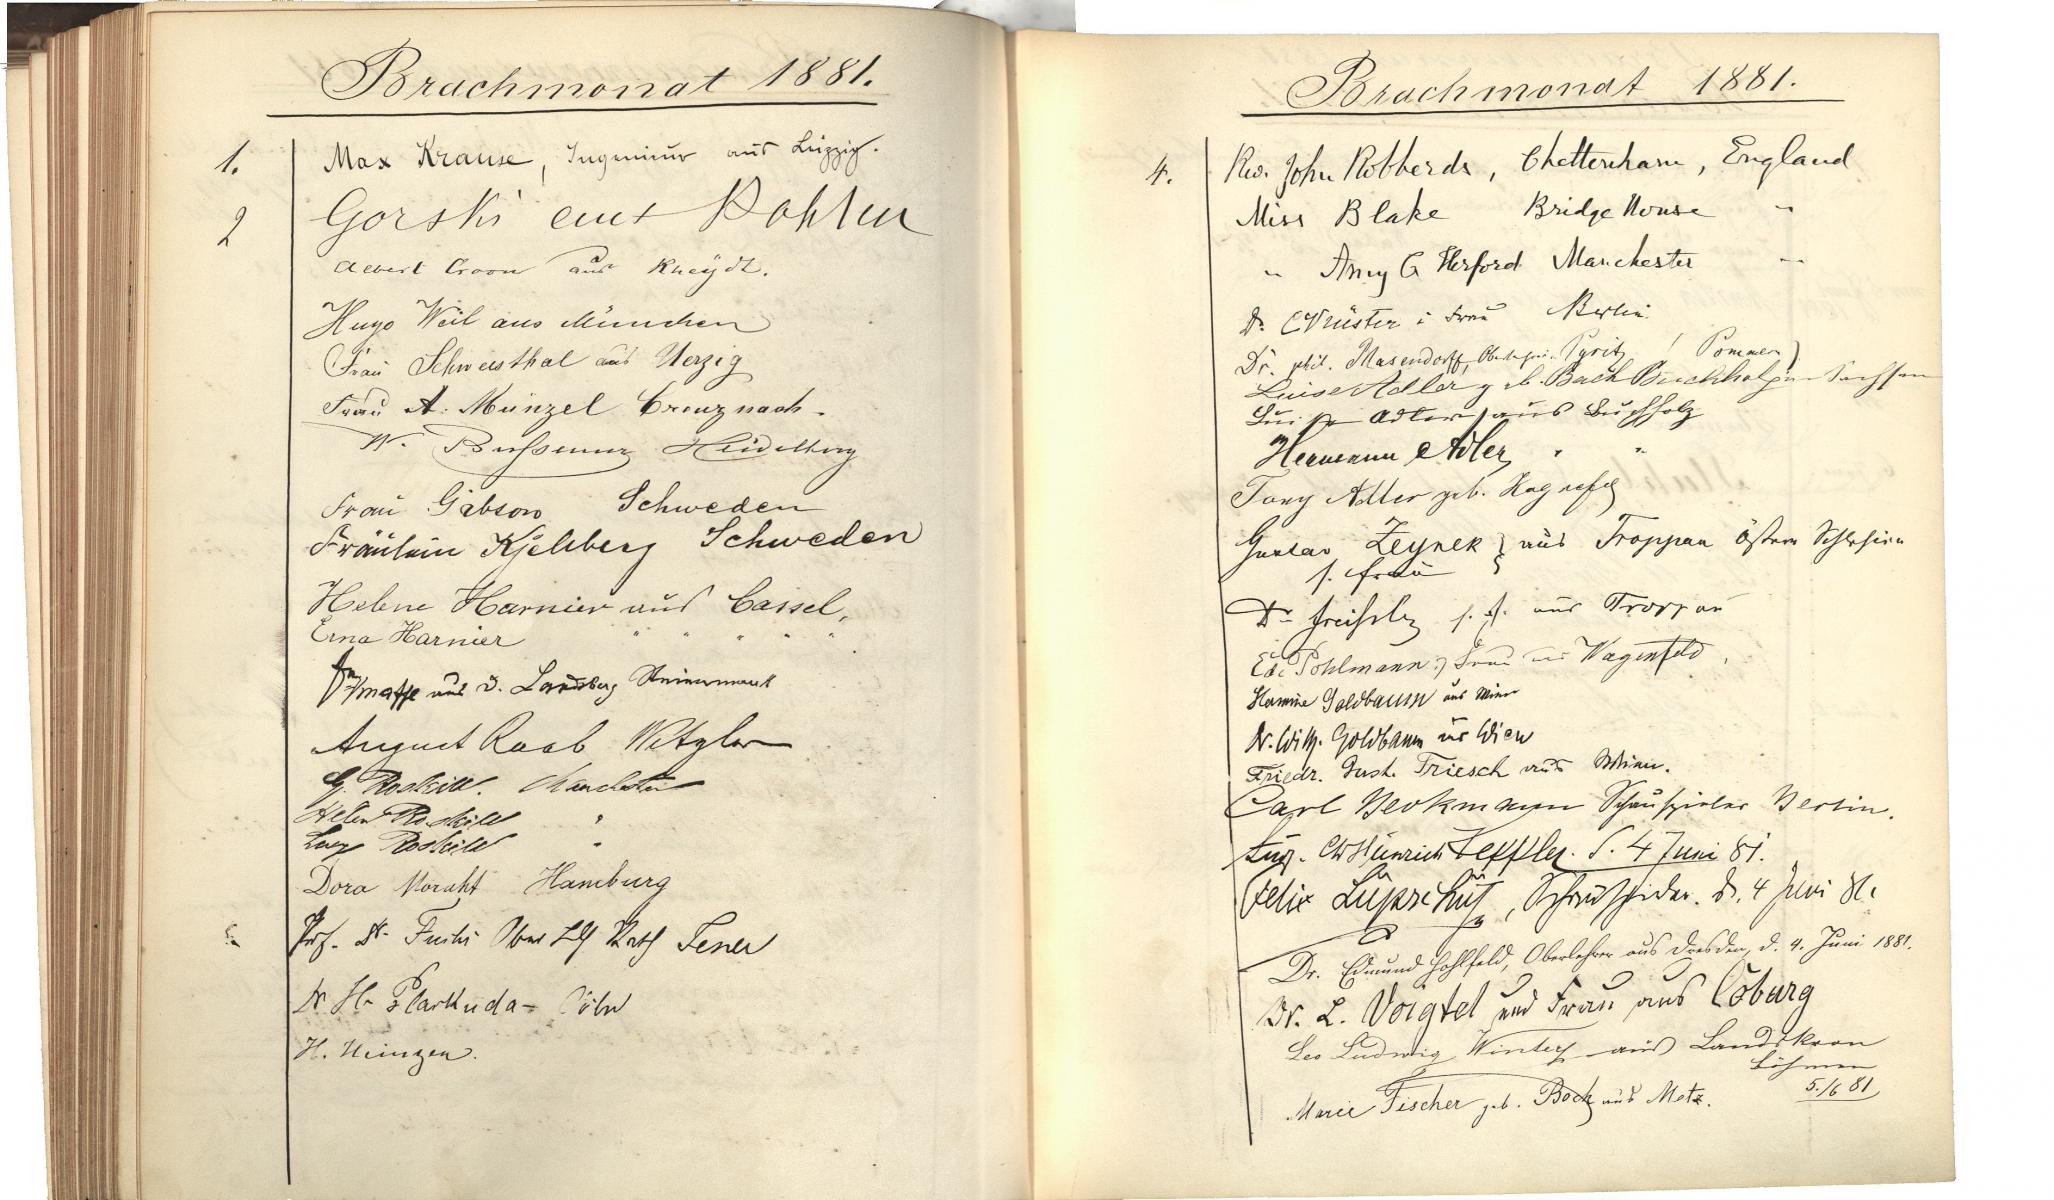 Brachmonat 1881.
1. Max Krause, Ingenieur aus Leipzig.
2 Gorski aus Pohlen
Albert Croon aus Rheydt.
Hugo Weil aus München
Frau Schweisthal aus Uerzig
Frau A. Münzel Creuznach.
W. Bussemer Heidelberg
Frau Gibson Schweden
Fräulein Kjellberg Schweden
Helene Harnier aus Cassel,
Erna Harnier " " " " "
aus D. Landsberg Steiermark
August Raab Wetzlar
G. Roskill. Manchester
Helen Roskill "
Lucy Roskill "
Dora Moraht Hamburg
Prof. Dr. Fuchs Jener
Dr H. Plarkuda - Cöln
H. Heinzen.
Brachmonat 1881.
4. Rev. John Robberds, Cheltenham, England
Miss Blake Bridge House "
" Amy G Herford Manchester "
Dr. Küster & Frau Berlin
Dr. phil. Masendorff, Pyritz (Pommern)
Luise Adler geb. Bach Buchholz in Sachsen
Luise Adler aus Buchholz
Hermann Adler " "
Tony Adler geb.
Gustav Zeynek } aus Troppau östern Schlesien
s. Frau
Dr s. f. aus Troppau
Ed. Pohlmann & Frau aus Wagenfeld,
Hermine Goldbaum aus Wien
Dr. Wilh. Goldbaum aus Wien
Friedr. Gust. Triesch aus Wien.
Carl Beckmann Schauspieler Berlin.
Aug. Chr Heinrich Zeffler. d. 4 Juni 81.
Felix Lüpschütz, Schauspieler. d. 4 Juni 81.
Dr. Edmund Hohlfeld, Oberlehrer aus Dresden, d. 4. Juni 1881.
Dr. L. Voigtel und Frau aus Coburg
Leo Ludwig Winter aus Landskron
Böhmen
5./6 81
Marie Fischer geb. Bock aus Metz.